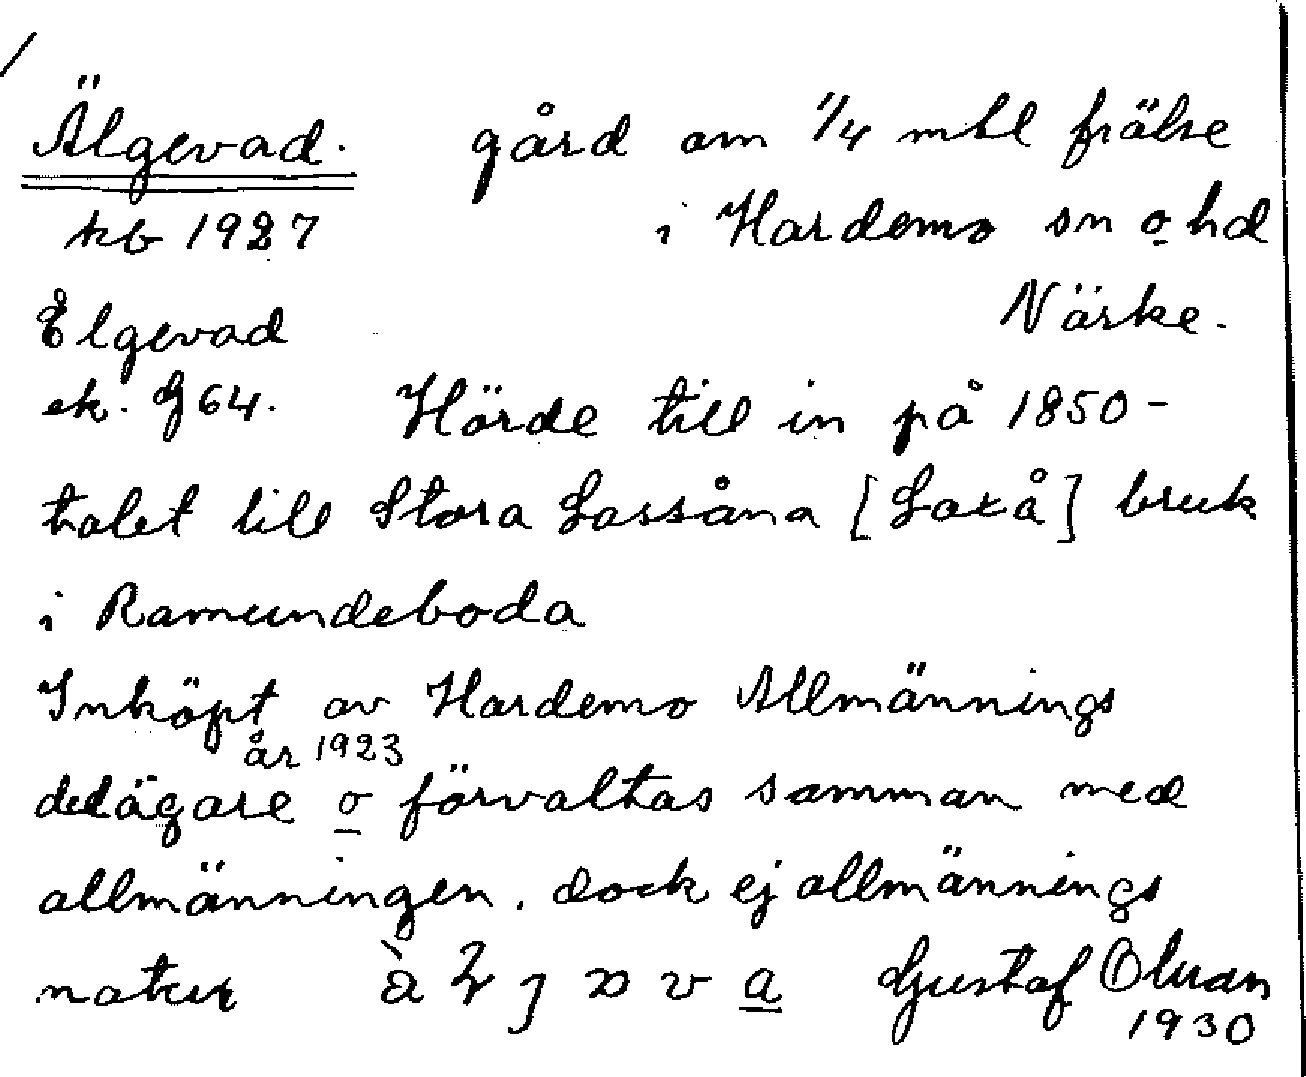 Älgevad. gård om 1/4 mtl frälse
kb 1927 i Hardemo sn o hd
Elgevad Närke.
ek. G 64. Hörde till in på 1850-
talet till Stora Lassåna [Laxå] bruk
i Ramundeboda
Inköpt av Hardemo Allmännings
år 1923
delägare o förvaltas samman med
allmänningen, dock ej allmännings
natur Gustaf Olson
1930